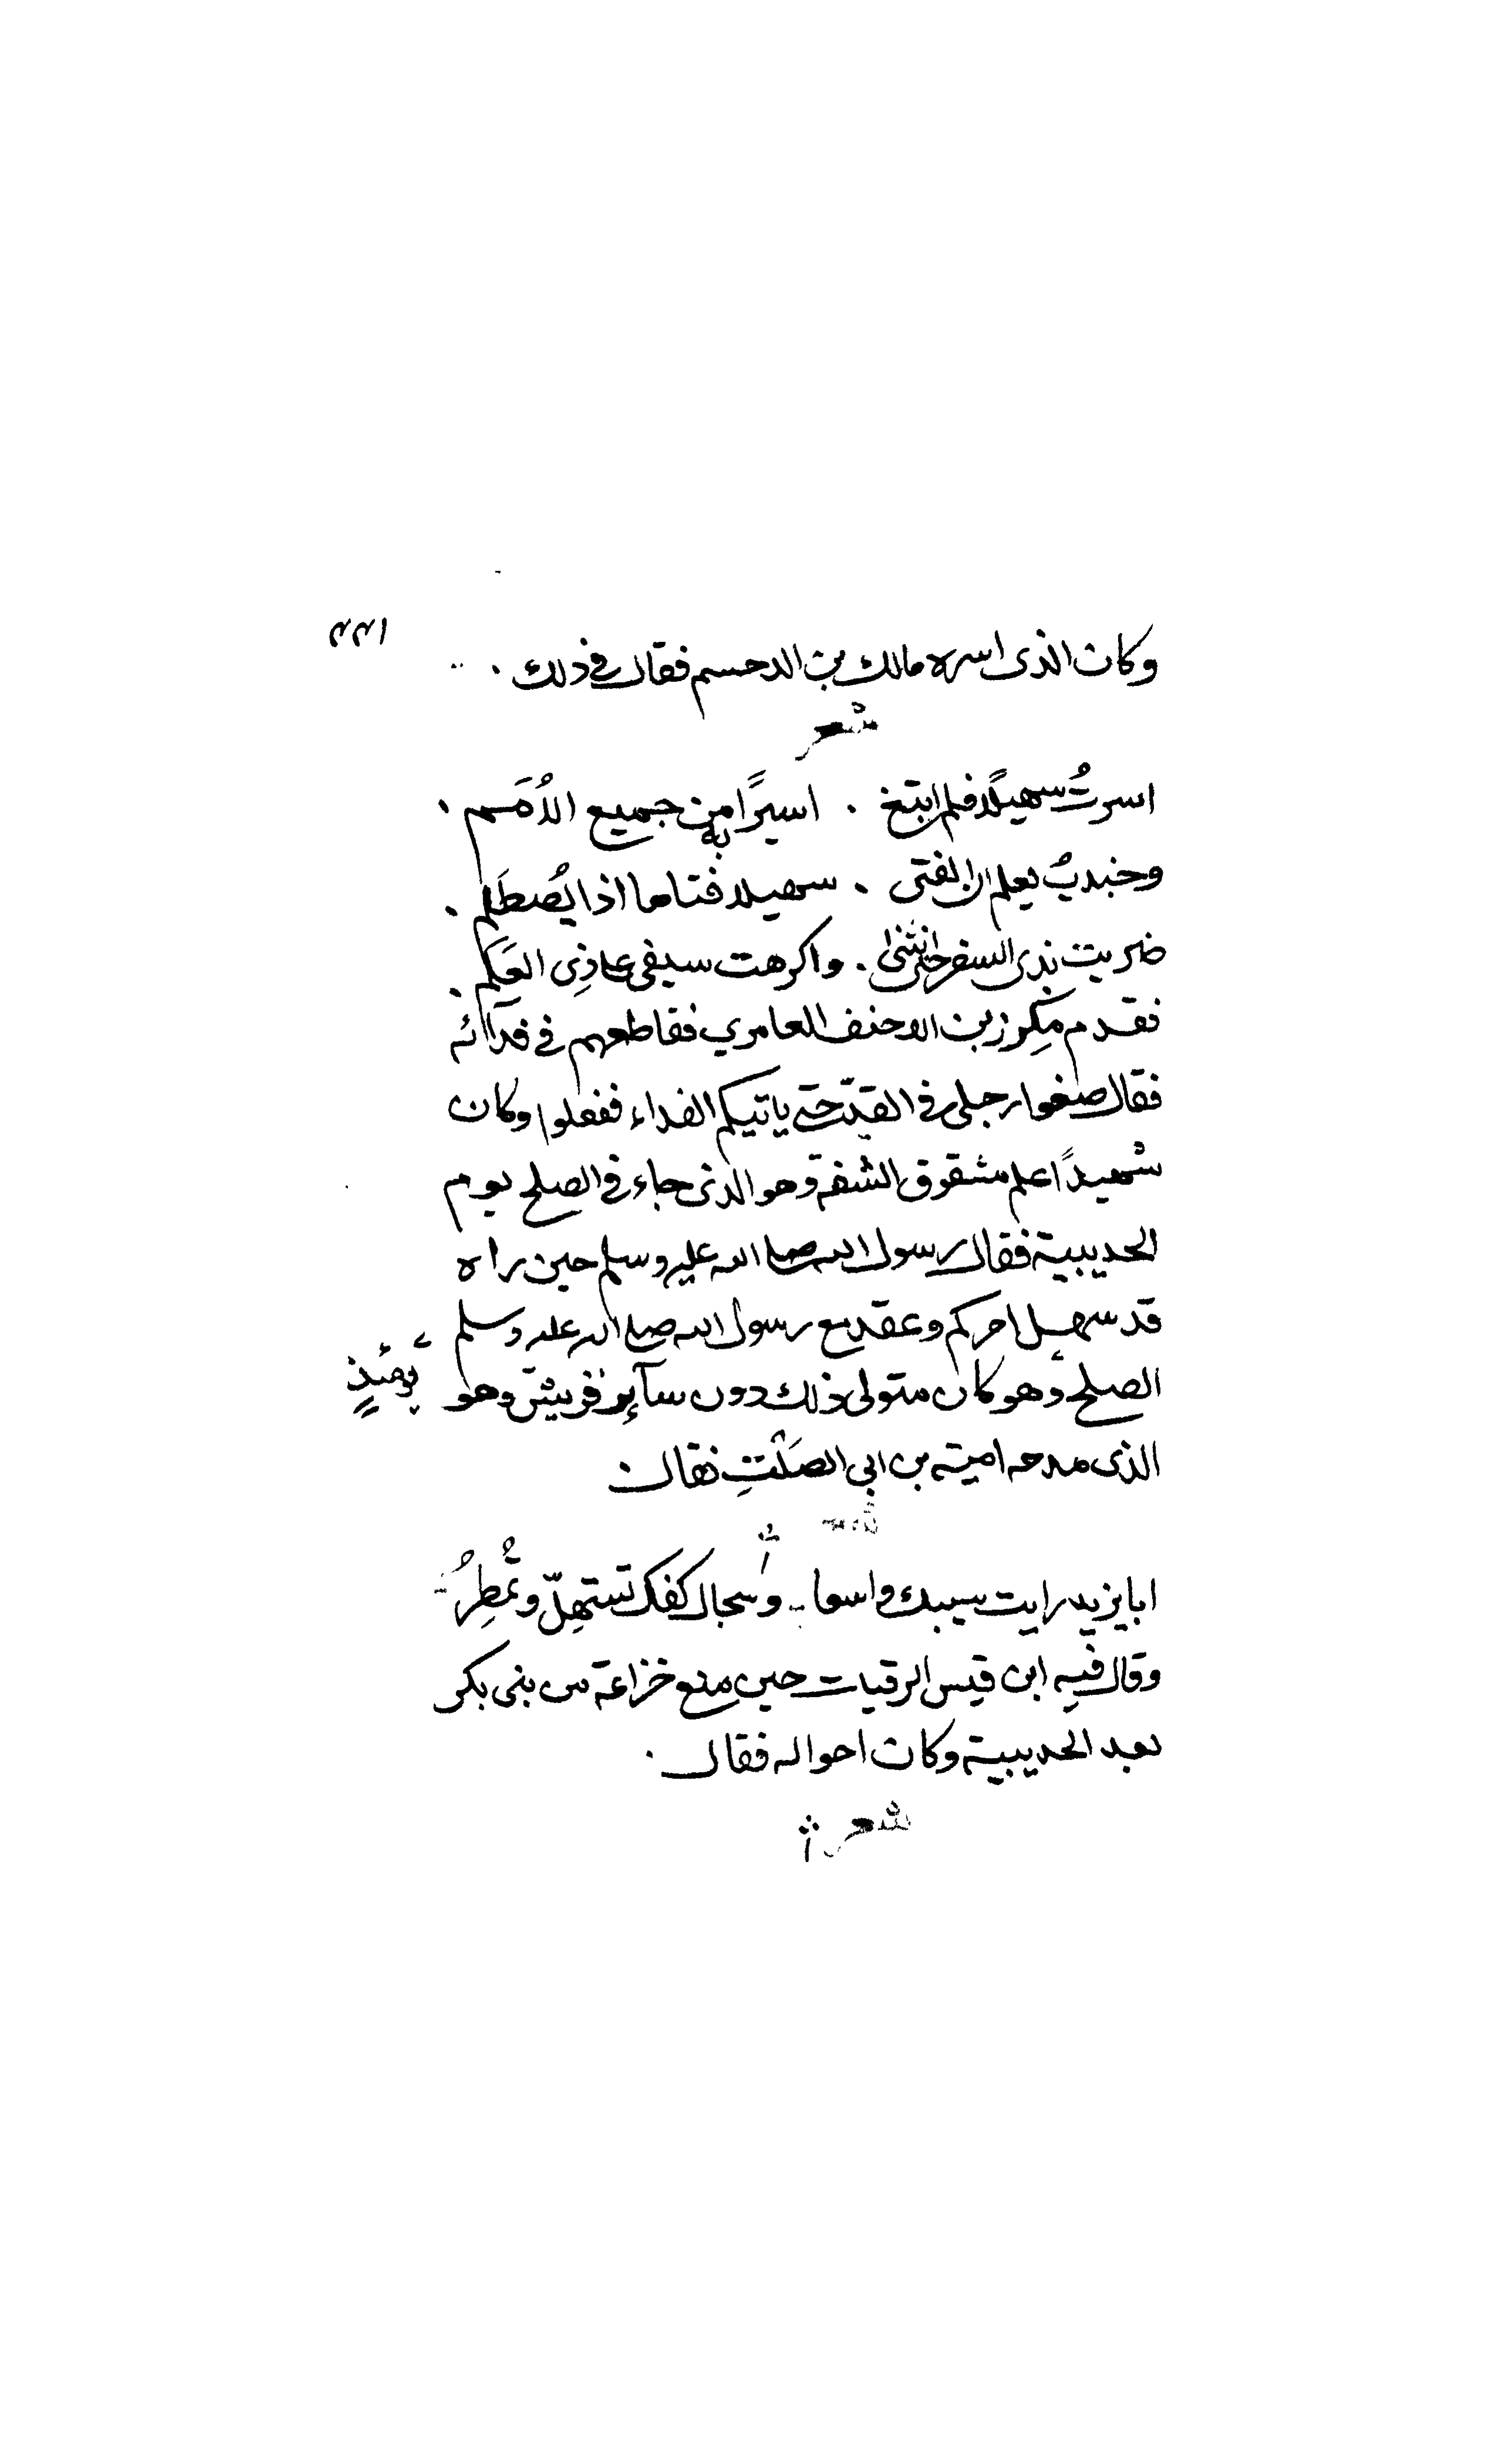 ١٣٣
وكان الذى اسره مالك بن الدحسم فقال فى ذلك .
شعر
اسرتُ سهيلًا فلم ابتغ . اسيرًا به من جميع الأُمَم .
وخندفُ يعلم ان الفتى . سهيلا فتاها اذا يُصطَلم .
ضربت بذى السفر حتى انثنى . واكرهت سيفى على ذِى العَلَم .
فقدم مِكرز بن الاحنف العامري فقاطعهم فى فدآئه
فقال ضعوا رجلى فى القيد حتى ياتيكم الفداء ففعلوا وكان
سُهيدًا اعلم مشقوق الشفة وهو الذى جاء فى الصلح يوم
الحديبية فقال رسول الله صلى الله عليه وسلم حين راه
قد سهل امركم وعقد مع رسول الله صلى الله عليه وسلم
الصلح يومئذٍ وهو كان متولى ذلك دون سآئر قريش وهو
الذى مدحه امية بن ابى الصَلْتِ فقال
ابا يزيد رايت سيبك واسعا وسجال كفك تستهِلّ وتُمطِرُ
وقال فيه ابن قيس الرقيات حين منع خزاعة من بنى بكر
بعد الحديبية وكان احواله فقال .
شعر